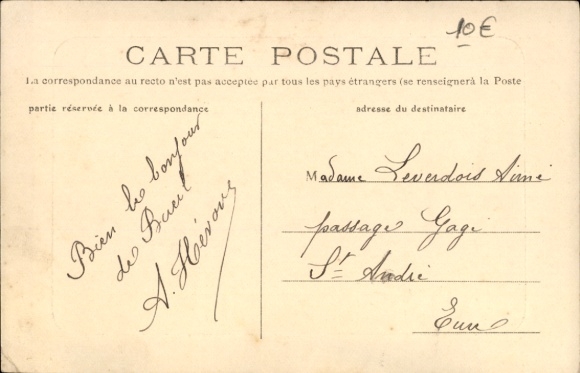 10€
CARTE POSTALE
La correspondance au recto n'est pas acceptée par tous les pays étrangers (se renseigner à la Poste
partie réservée à la correspondance
adresse du destinataire
Bien le bonjour
de Bueil
A. Hérou
Madame Leverdois Aimé
passage Gage
St André
Eure